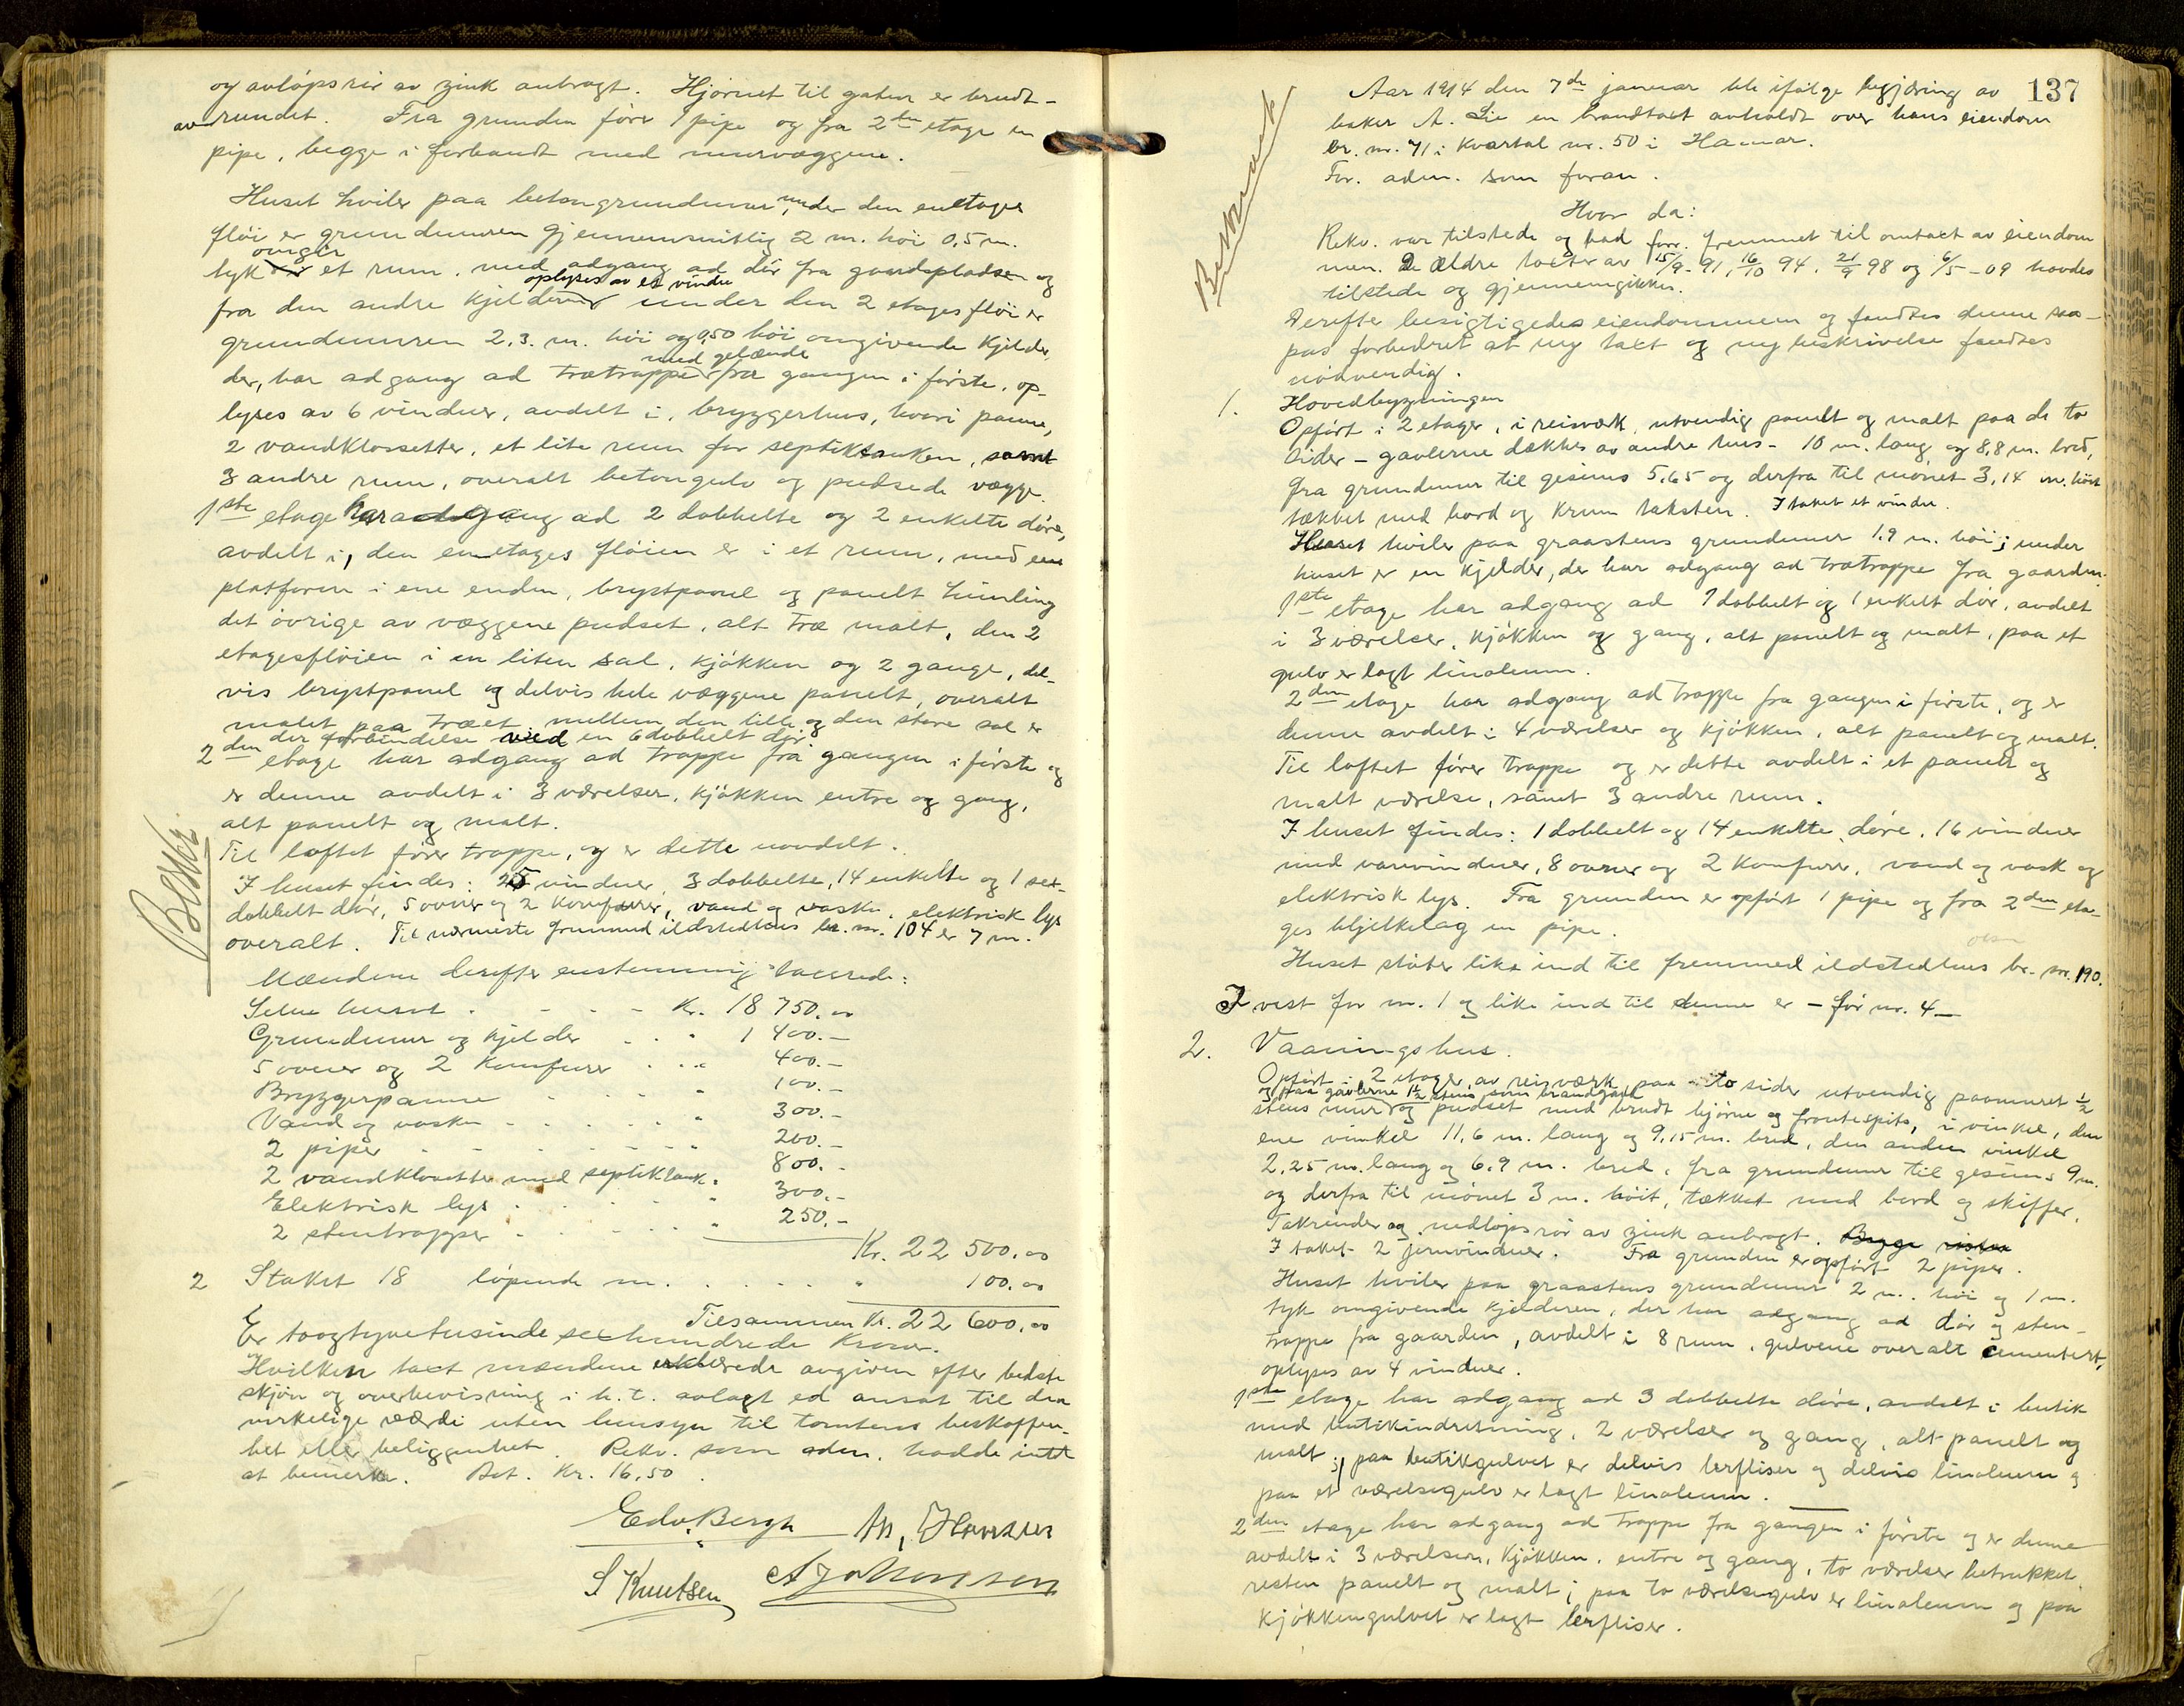 og avløpsrør av zink anbragt. Hjørnet til gaten er brudt-
avrundet. Fra grunden fører 1 pipe og fra 2den etage en
pipe, begge i forbandt med murvæggene.
Huset hviler paa betongrundmur, under den enetages
fløi er grundmuren gjennemsnitlig 2 m. høi 0,5 m.
omgir
tyk et rum, med adgang ad dør fra gaardspladsen og
oplyses av et vindu
fra den andre kjelderen under den 2 etages fløi er
grundmuren 2,3. m. høi og 0,50 høi omgivende kjelder,
med gelænde
der, har adgang ad trætrappe fra gangen i første, op-
lyses av 6 vinduer, avdelt i, bryggerhus, hvori panne,
2 vandklossetter, et lite rum for septiktanken, samt
3 andre rum, overalt betongulv og pudsede vægge.
1ste etage har adgang ad 2 dobbelte og 2 enkelte døre,
avdelt i, den enetages fløien er i et rum, med een
platform i ene enden, brystpanel og panelt himling
det øvrige av væggene pudset, alt træ malt, den 2
etagesfløien i en liten sal, kjøkken og 2 gange, del-
vis brystpanel og delvis hele væggene panelt, overalt
malet paa træet. mellem den lille og den store sal er
der forbindelse ved en 6 dobbelt dør.
2den etage har adgang ad trappe fra gangen i første og
er denne avdelt i 3 værelser, kjøkken entre og gang,
alt panelt og malt.
Til loftet fører trappe, og er dette uavdelt.
I huset findes: 25 vinduer, 3 dobbelte, 14 enkelte og 1 sex-
dobbelt dør, 5 ovner og 2 komfurer, vand og vaske, elektrisk lys
overalt. Til nærmeste fremmed ildstedhus br. nr. 104 er 7 m.
Beskr.
Mændene derefter enstemmig taxerede:
Selve huset . - - - Kr. 18 750.00
Grundmur og kjelder . . " 1 400.-
5 ovner og 2 komfurer . . " 400.-
Bryggerpanne . . . " 100.-
Vand og vaske . . . . " 300.-
2 piper . . . . " 200.-
2 vandklosetter med septiktank. " 800.-
Elektrisk lys . . . " 300.-
2 stentrapper . . . . " 250.-
Kr. 22 500.00
2 Staket 18 løpende m. . . . . . " 100.00
Tilsammen Kr. 22 600.00
Er toogtyvetusinde sexhundrede kroner.
Hvilken taxt mændene erklærede avgiven efter bedste
skjøn og overbevisning i h. t. avlagt ed ansat til den
virkelige værdi uten hensyn til tomtens beskaffen-
het eller beliggenhet. Rekv. som adm. hadde intet
at bemerke. Bet. Kr. 16,50.
Edv. Bergh M. Hansen
S Knutsen A Johansen
137
Aar 1914 den 7de januar ble ifølge begjæring av
baker A. Lie en brandtaxt avholdt over hans eiendom
br. nr. 71 i kvartal nr. 50 i Hamar.
For. adm. som foran.
Hvor da:
Rekv. var tilstede og bad forr. fremmet til omtaxt av eiendom
men. De ældre taxter av 15/9-91, 16/10 94, 21/9 98 og 6/5-09 havdes
tilstede og gjennemgikkes.
Derefter besigtigedes eiendommen og fandtes denne saa-
pas forbedret at ny taxt og ny beskrivelse fandtes
nødvendig.
1. Hovedbygningen
Opført i 2 etager, i reisværk, utvendig panelt og malt paa de to
sider - gavlerne dækkes av andre hus - 10 m. lang og 8,8 m. bred,
fra grundmur til gesims 5,65 og derfra til mønet 3,14 m. høit
tækket med bord og krum taksten. I taket et vindu.
Huset hviler paa graastens grundmur 1.9 m. høi; under
huset er en kjelder, der har adgang ad trætrappe fra gaarden.
1ste etage har adgang ad 1 dobbelt og 1 enkelt dør, avdelt
i 3 værelser, kjøkken og gang, alt panelt og malt, paa et
gulv er lagt linoleum.
2den etage har adgang ad trappe fra gangen i første, og er
denne avdelt i 4 værelser og kjøkken, alt panelt og malt.
Til loftet fører trappe og er dette avdelt i et panelt og
malt værelse, samt 3 andre rum.
I huset findes: 1 dobbelt og 14 enkelte døre, 16 vinduer
med varevinduer, 8 ovner og 2 komfurer, vand og vask og
elektrisk lys. Fra grunden er opført 1 pipe og fra 2den eta-
ges bljelkelag en pipe.
Huset støter like ind til fremmed ildstedhus br. nr. 190.
I vest for nr. 1 og like ind til denne er - før nr. 4 -
2. Vaaningshus.
Opført i 2 etager, av reisværk, paa to sider utvendig paamuret 1/2
og paa gavlerne 1 1/2 stens som brandgavl
stens mur og pudset med brudt hjørne og frontespits, i vinkel, den
ene vinkel 11,6 m. lang og 9,15 m. bred, den anden vinkel
2,25 m. lang og 6,9 m. bred, fra grundmur til gesims 9 m.
og derfra til mønet 3 m. høit, tækket med bord og skiffer.
Takrender og nedløpsrør av zink anbragt.
I taket 2 jernvinduer. Fra grunden er opført 2 piper.
Huset hviler paa graastens grundmur 2 m. høi og 1 m.
tyk omgivende kjelderen, der har adgang ad dør og sten-
trappe fra gaarden, avdelt i 8 rum, gulvene overalt cementert,
oplyses av 4 vinduer.
1ste etage har adgang ad 3 dobbelte døre, avdelt i butik
med butikindretning, 2 værelser og gang, alt panelt og
malt; paa butikgulvet er delvis lerfliser og delvis linoleum og
paa et værelsegulv er lagt linoleum.
2den etage har adgang ad trappe fra gangen i første og er denne
avdelt i 3 værelser, kjøkken, entre og gang, to værelser betrukket,
resten panelt og malt; paa to værelsegulv er linoleum og paa
kjøkkengulvet er lagt lerfliser.